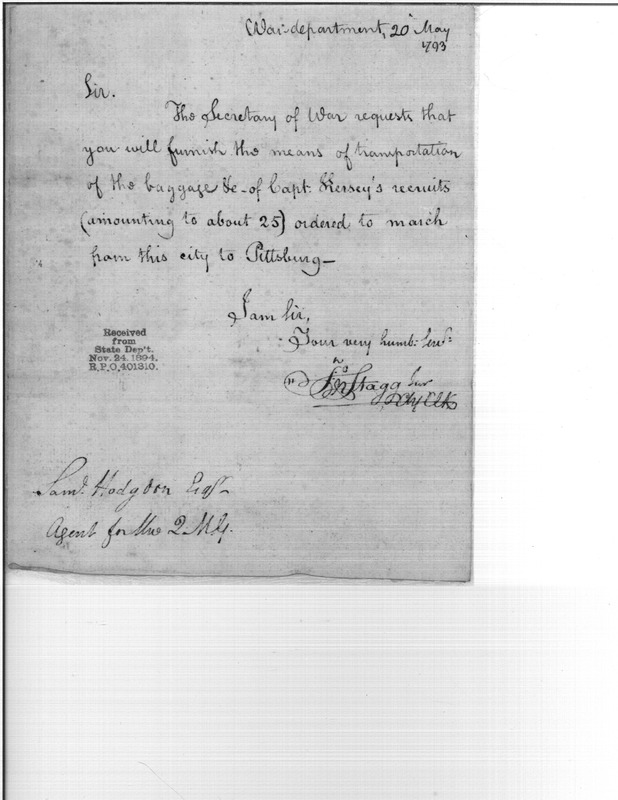 War-department, 20 May
1793
Sir.
The Secretary of War requests that
you will furnish the means of transportation
of the baggage &c of Capt. Kersey's recruits
(amounting to about 25) ordered to march
from this city to Pittsburg—
I am Sir,
Your very humb: Serv:
Jno Stagg Junr
Received
from
State Dep't.
Nov. 24, 1894.
R.P.O, 401310.
Saml. Hodgdon Esqr
Agent for the Q.M.G.